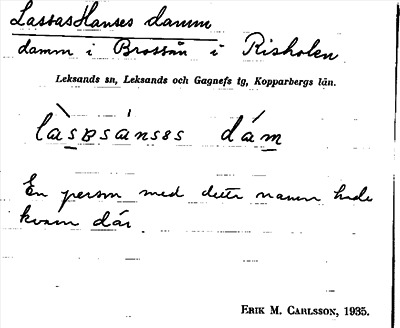 LassasHanses damm
damm i Brossån i Risholen
Leksands sn, Leksands och Gagnefs tg, Kopparbergs län.
làsɐsánsɐs dám
En person med detta namn hade
kvarn där.
ERIK M. CARLSSON, 1935.